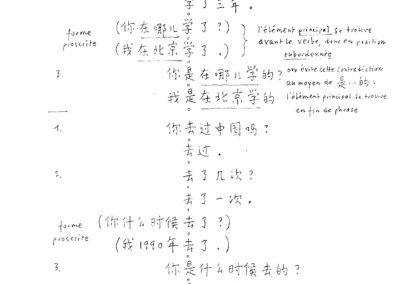 学了三年.
forme proscrite
(你在哪儿学了?)
(我在北京学了.)
l'élément principal se trouve
avant le verbe, donc en position
subordonnée
3. 你是在哪儿学的?
我是在北京学的
on évite cette contradiction
au moyen de 是...的:
l'élément principal se trouve
en fin de phrase
1. 你去过中国吗?
去过.
2. 去了几次?
去了一次.
forme proscrite
(你什么时候去了?)
(我1990年去了.)
3. 你是什么时候去的?